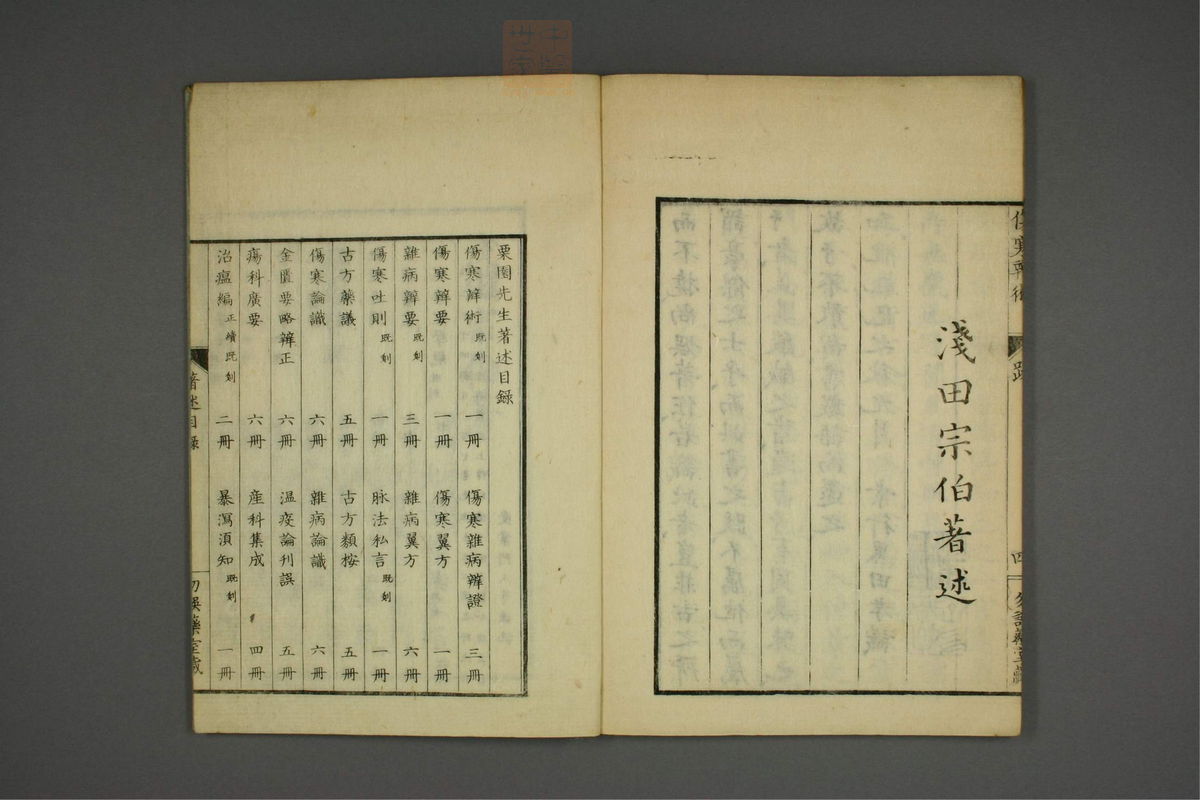 傷寒辨術
跋
四
勿誤藥室藏
淺田宗伯著述
栗園先生著述目錄
傷寒辨術 既刻 一冊 傷寒雜病辨證 三冊
傷寒辨要 一冊 傷寒翼方 一冊
雜病辨要 既刻 三冊 雜病翼方 六冊
傷寒吐則 既刻 一冊 脉法私言 既刻 一冊
古方藥議 五冊 古方類按 五冊
傷寒論識 六冊 雜病論識 六冊
金匱要略辨正 六冊 溫疫論刊誤 五冊
瘍科廣要 六冊 産科集成 四冊
治瘟編 正續既刻 二冊 暴瀉須知 既刻 一冊
著述目錄
勿誤藥室藏